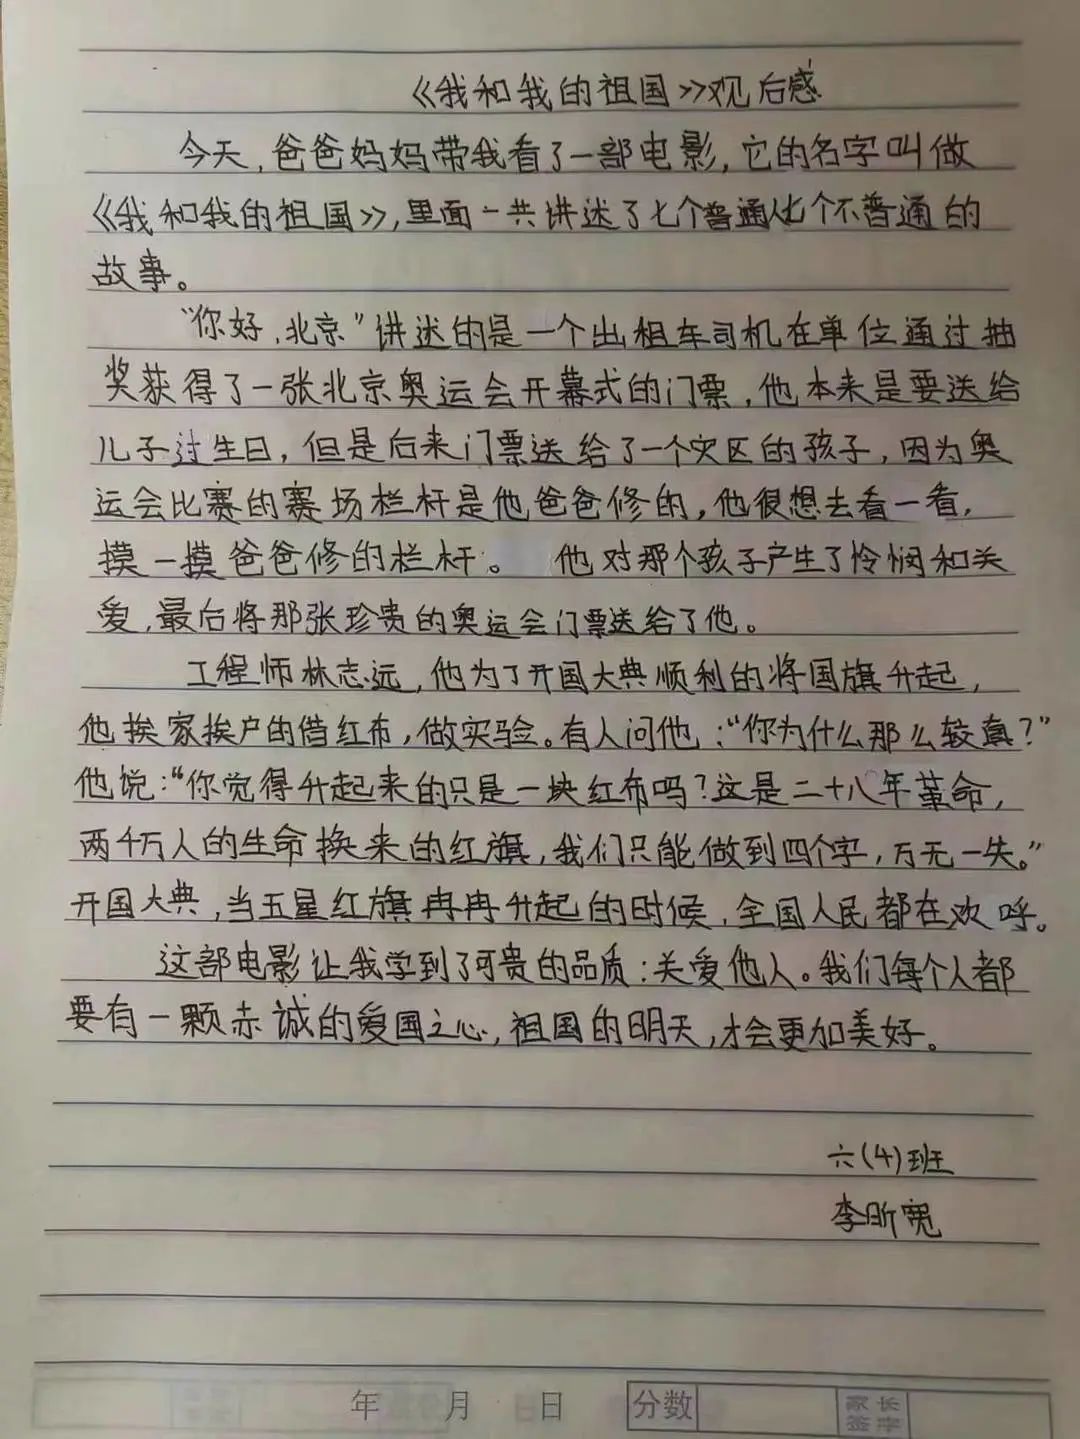 《我和我的祖国》观后感
今天,爸爸妈妈带我看了一部电影,它的名字叫做
《我和我的祖国》,里面一共讲述了七个普通人七个不普通的
故事。
“你好,北京”讲述的是一个出租车司机在单位通过抽
奖获得了一张北京奥运会开幕式的门票,他本来是要送给
儿子过生日,但是后来门票送给了一个灾区的孩子,因为奥
运会比赛的赛场栏杆是他爸爸修的,他很想去看一看,
摸一摸爸爸修的栏杆。 他对那个孩子产生了怜悯和关
爱,最后将那张珍贵的奥运会门票送给了他。
工程师林志远,他为了开国大典顺利的将国旗升起,
他挨家挨户的借红布,做实验。有人问他:“你为什么那么较真?”
他说:“你觉得升起来的只是一块红布吗?这是二十八年革命,
两千万人的生命换来的红旗,我们只能做到四个字,万无一失。”
开国大典,当五星红旗冉冉升起的时候,全国人民都在欢呼。
这部电影让我学到了可贵的品质:关爱他人。我们每个人都
要有一颗赤诚的爱国之心,祖国的明天,才会更加美好。
六(4)班
李昕宽
年 月 日 分数